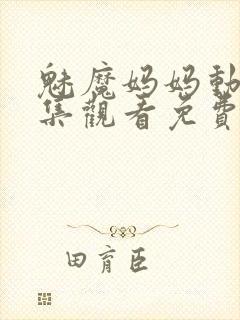 魅魔妈妈動
集觀看免費
田育臣